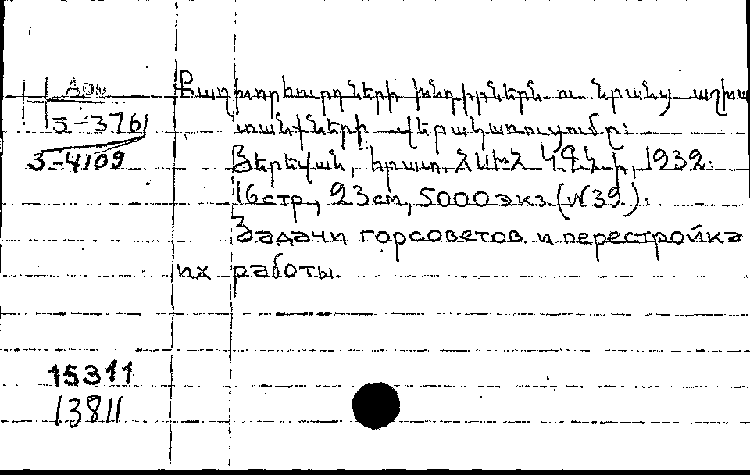 Арм
3-3761
3-4109
Քաղխորհուրդների խնդիրներն ու նրանց աշխա
տանքների վերակառուցումը:
Յերեվան, հրատ. ՀՍԽՀ ԿԳԿ-ի, 1932.
16стр., 23см, 5000экз. (N39).
Задачи горсоветов и перестройка
их работы.
15311
13811